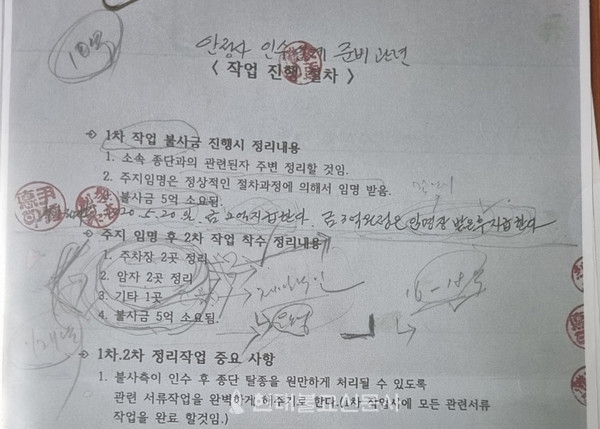 안정사 인수 준비 관련
< 작업 진행 절차 >
⊙ 1차 작업 불사금 진행시 정리내용
1. 소속 종단과의 관련된자 주변 정리할 것임.
2. 주지임명은 정상적인 절차과정에 의해서 임명 받음.
불사금 5억 소요됨.
20. 5. 20일 금 2억 지급한다. 금 3억 임명장 받은 후 지급한다
주지 임명 후 2차 작업 착수 정리내용
1. 주차장 2곳 정리
2. 암자 2곳 정리
3. 기타 1곳
4. 불사금 5억 소요됨.
운영
16-18
⊙ 1차.2차 정리작업 중요 사항
1. 불사측이 인수 후 종단 탈종을 원만하게 처리될 수 있도록
관련 서류작업을 완벽하게 해주기로 한다.(1차 작업시에 모든 관련서류
작업을 완료 할것임.)
현대불교신문사